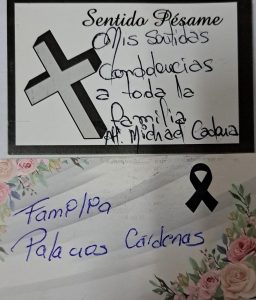 Sentido Pésame
Mis sentidas
Condolencias
a toda la
familia
At. Michael Cadena
Familia
Palacios Cárdenas